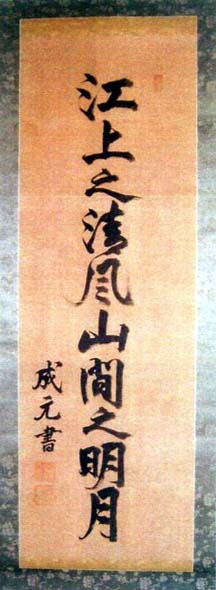 江上之清风山間之明月
成元書